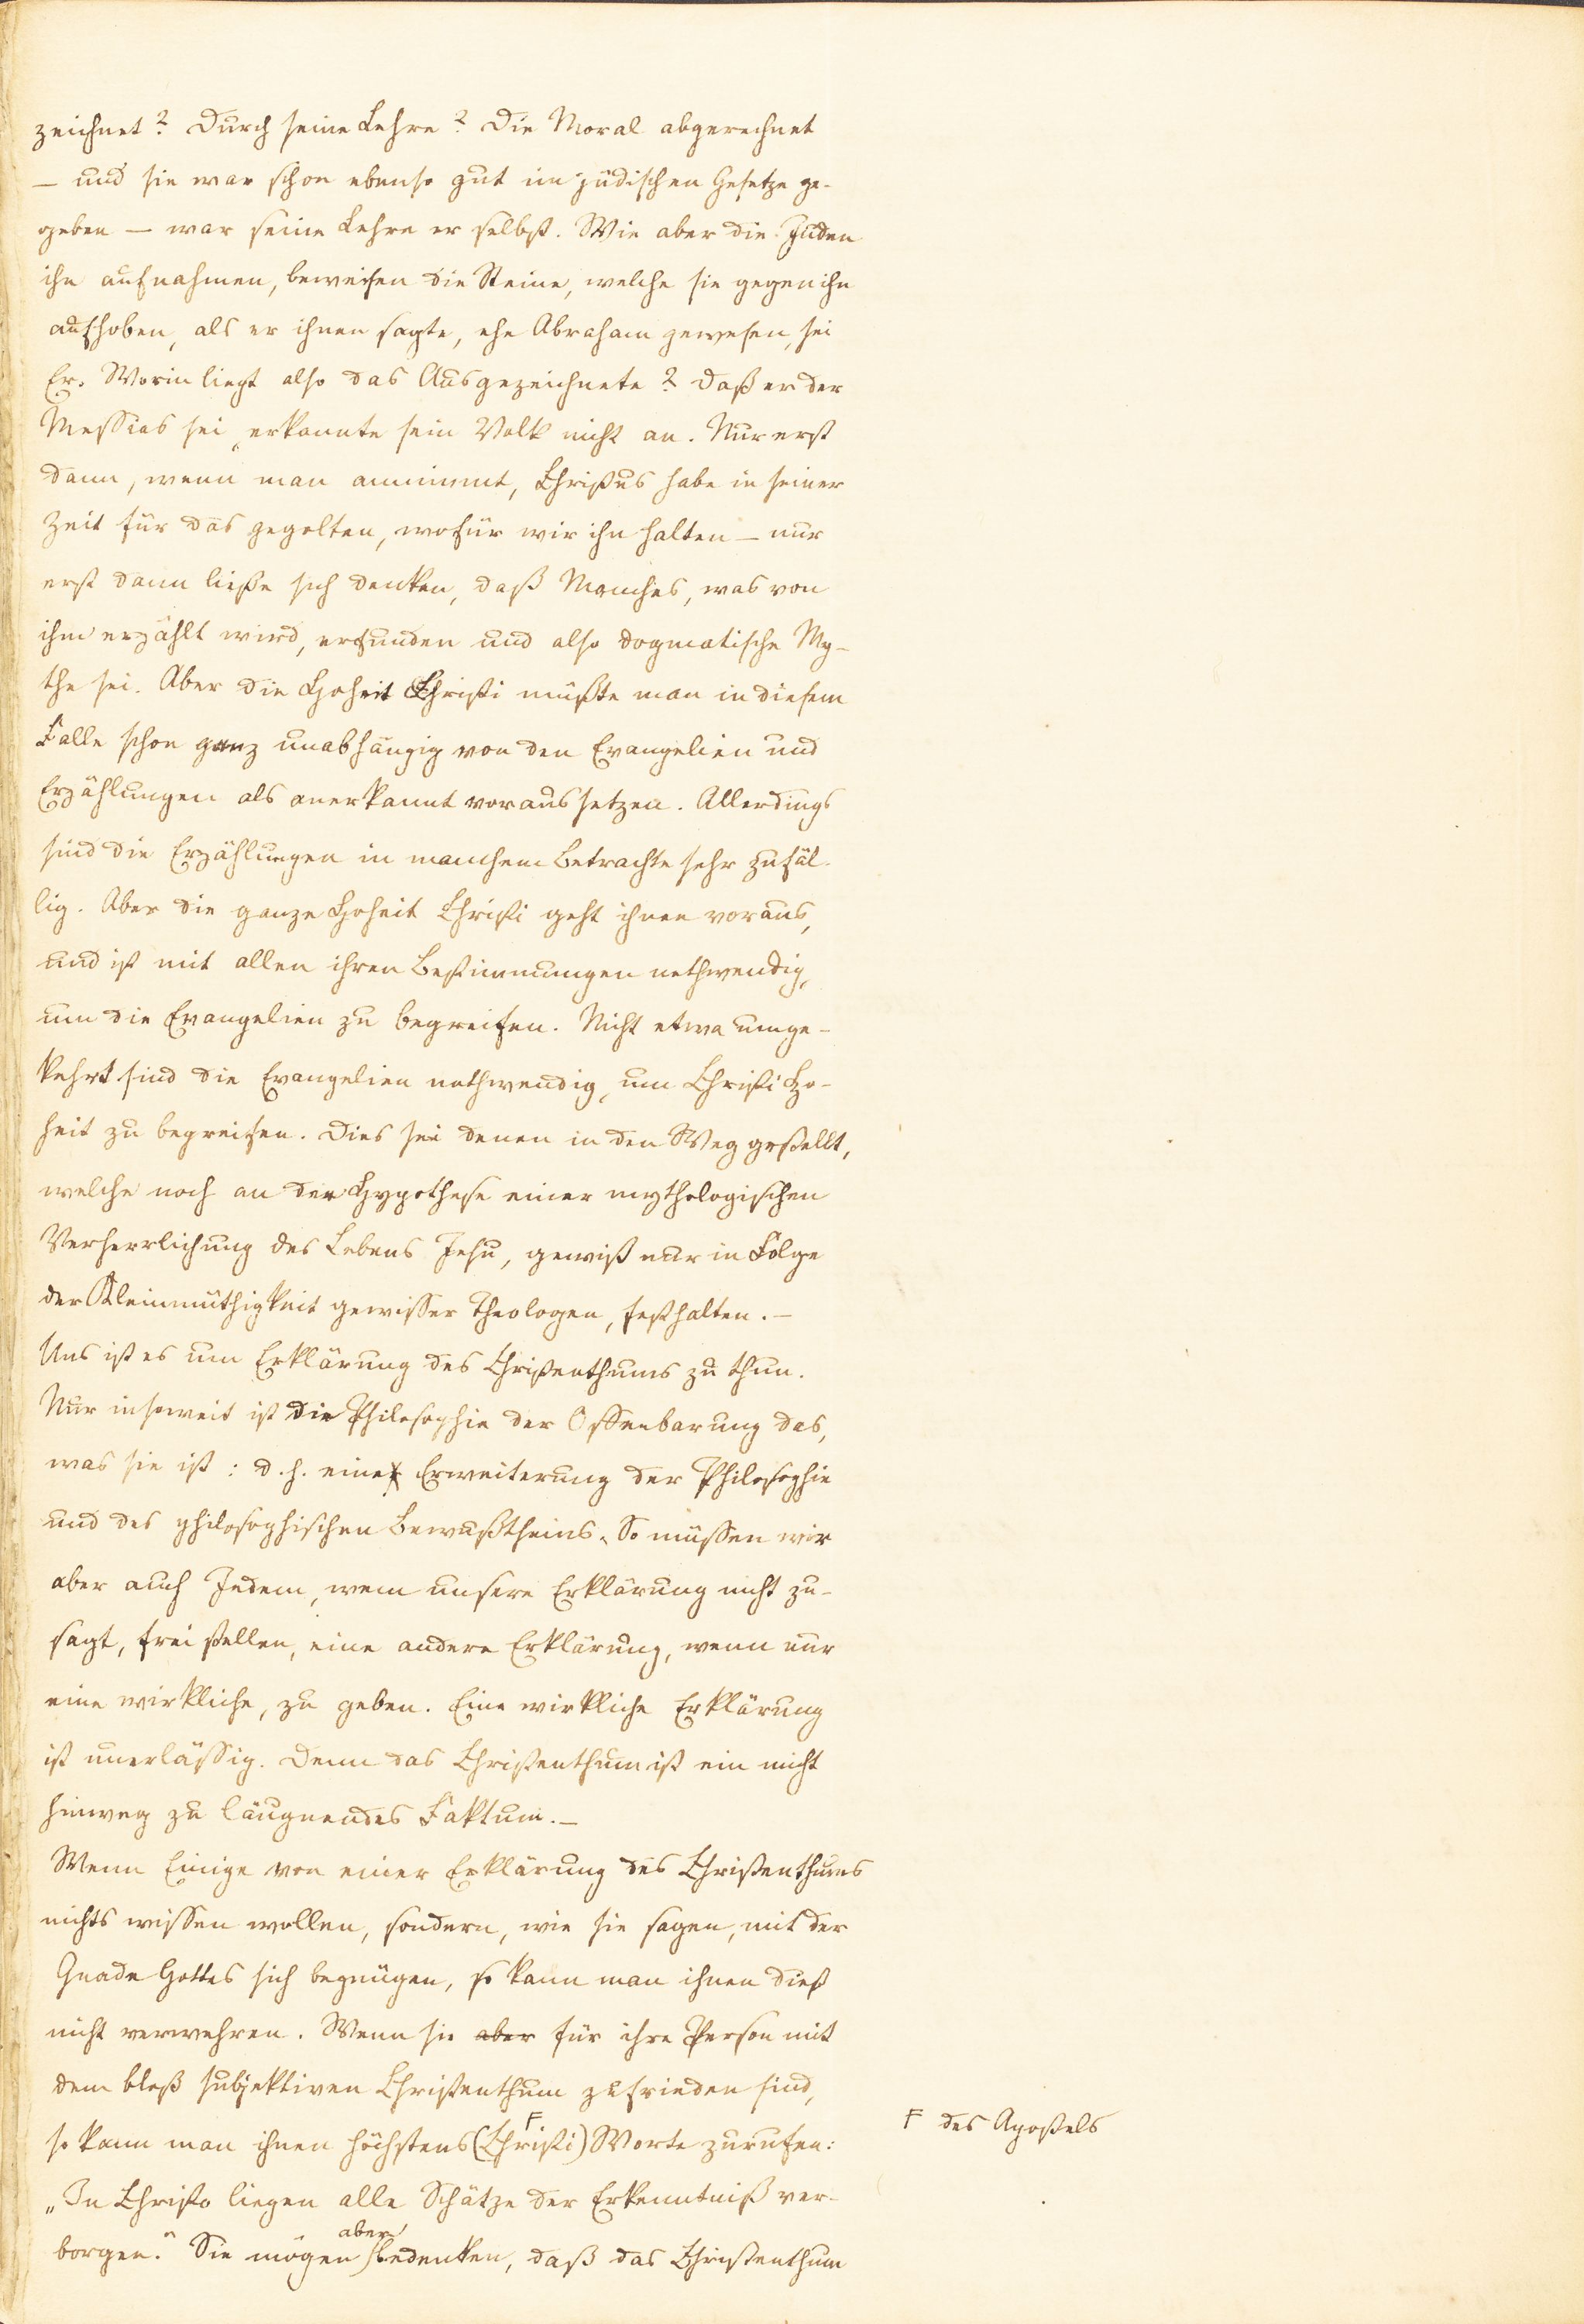 zeichnet? Durch seine Lehre? Die Moral abgerechnet
— und sie war schon ebenso gut im jüdischen Gesetze ge-
geben — war seine Lehre er selbst. Wie aber die Juden
ihn aufnahmen, beweisen die Steine, welche sie gegen ihn
aufhoben, als er ihnen sagte, ehe Abraham gewesen, sei
Er. Worin liegt also das Ausgezeichnete? Daß er der
Messias sei, erkannte sein Volk nicht an. Nur erst
dann, wenn man annimmt, Christus habe in seiner
Zeit für das gegolten, wofür wir ihn halten — nur
erst dann ließe sich denken, daß Manches, was von
ihm erzählt wird, erfunden und also dogmatische My-
the sei. Aber die Hoheit Christi müßte man in diesem
Falle schon ganz unabhängig von den Evangelien und
Erzählungen als anerkannt voraussetzen. Allerdings
sind die Erzählungen in manchem Betrachte sehr zufäl-
lig. Aber die ganze Hoheit Christi geht ihnen voraus,
und ist mit allen ihren Bestimmungen nothwendig,
um die Evangelien zu begreifen. Nicht etwa umge-
kehrt sind die Evangelien nothwendig, um Christi Ho-
heit zu begreifen. Dies sei denen in den Weg gestellt,
welche noch an der Hypothese einer mythologischen
Verherrlichung des Lebens Jesu, gewiß nur in Folge
der Kleinmüthigkeit gewisser Theologen, festhalten. —
Uns ist es um Erklärung des Christenthums zu thun.
Nur insoweit ist die Philosophie der Offenbarung das,
was sie ist: d. h. eine Erweiterung der Philosophie
und des philosophischen Bewußtseins. So müssen wir
aber auch Jedem, wem unsere Erklärung nicht zu-
sagt, frei stellen, eine andere Erklärung, wenn nur
eine wirkliche, zu geben. Eine wirkliche Erklärung
ist unerlässig. Denn das Christenthum ist ein nicht
hinweg zu läugnendes Faktum. —
Wenn Einige von einer Erklärung des Christenthums
nichts wissen wollen, sondern, wie sie sagen, mit der
Gnade Gottes sich begnügen, so kann man ihnen dieß
nicht verwehren. Wenn sie aber für ihre Person mit
dem bloß subjektiven Christenthum zufrieden sind,
so kann man ihnen höchstens (Christi) F Worte zurufen:
F des Apostels
„In Christo liegen alle Schätze der Erkenntniß ver-
borgen." Sie mögen aber bedenken, daß das Christenthum